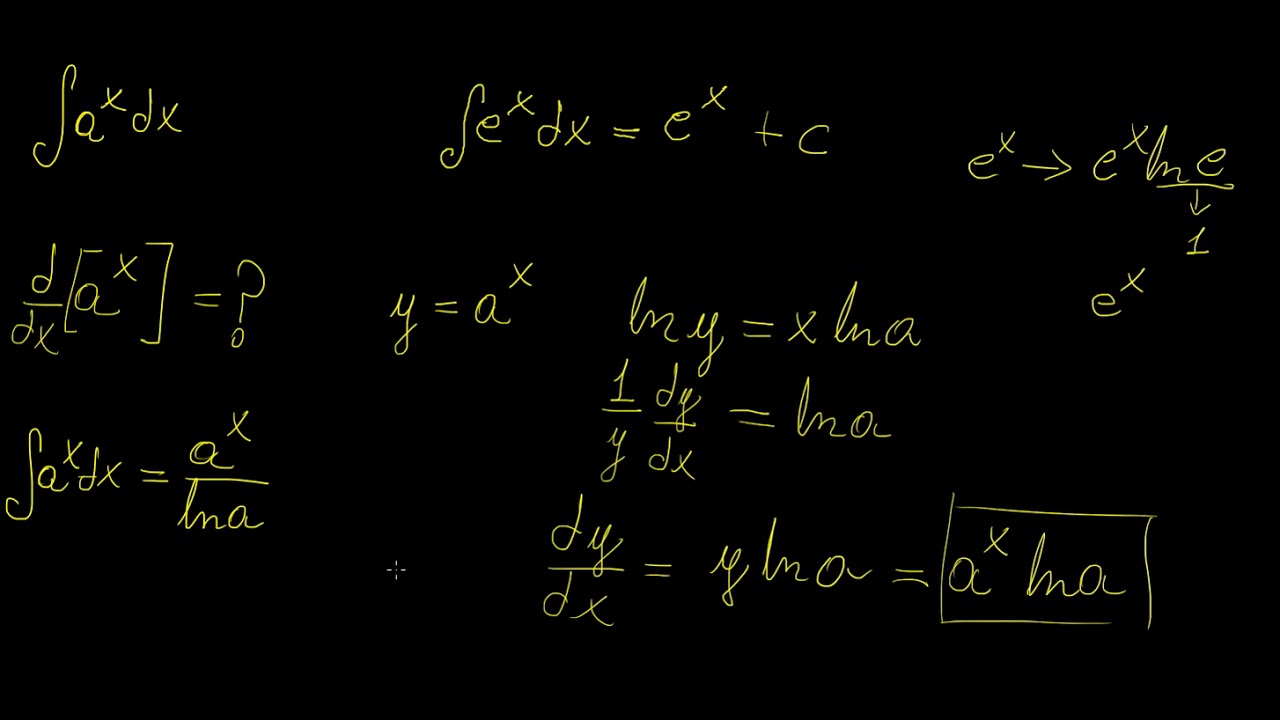 ∫aˣdx
∫eˣdx = eˣ + c
eˣ → eˣ ln e
↓
1
eˣ
d/dx [aˣ] = ?
y = aˣ
ln y = x ln a
1/y dy/dx = ln a
∫aˣdx = aˣ/ln a
dy/dx = y ln a = aˣ ln a